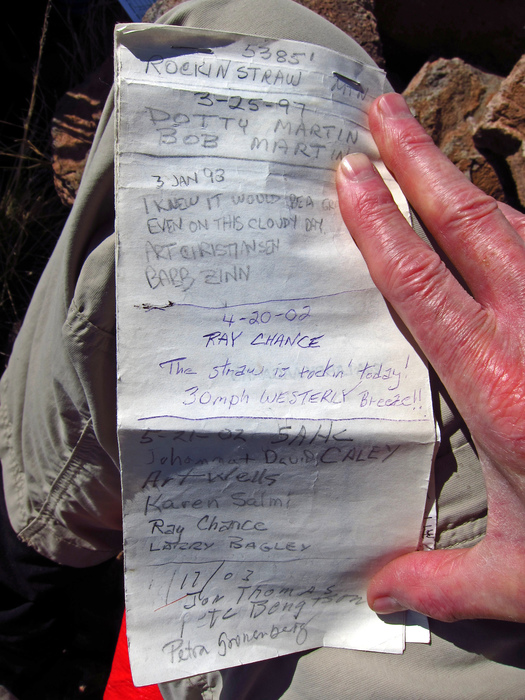 5385'
ROCKINSTRAW MTN
3-25-97
DOTTY MARTIN
BOB MARTIN
3 JAN 93
I KNEW IT WOULD BE A
EVEN ON THIS CLOUDY DAY.
ART CHRISTIANSEN
BARB ZINN
4-20-02
RAY CHANCE
The straw is rockin' today!
30mph WESTERLY Breeze!!
5-21-02 SAHC
David CALEY
Art Wells
Karen Salmi
Ray Chance
LARRY BAGLEY
1/17/03
Jon Thomas
Pete Bengtson
Petra